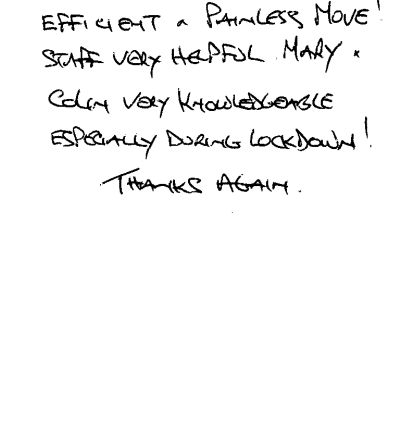 EFFICIENT & PAINLESS MOVE!
STAFF VERY HELPFUL MARY &
COLIN VERY KNOWLEDGEABLE
ESPECIALLY DURING LOCKDOWN!
THANKS AGAIN.